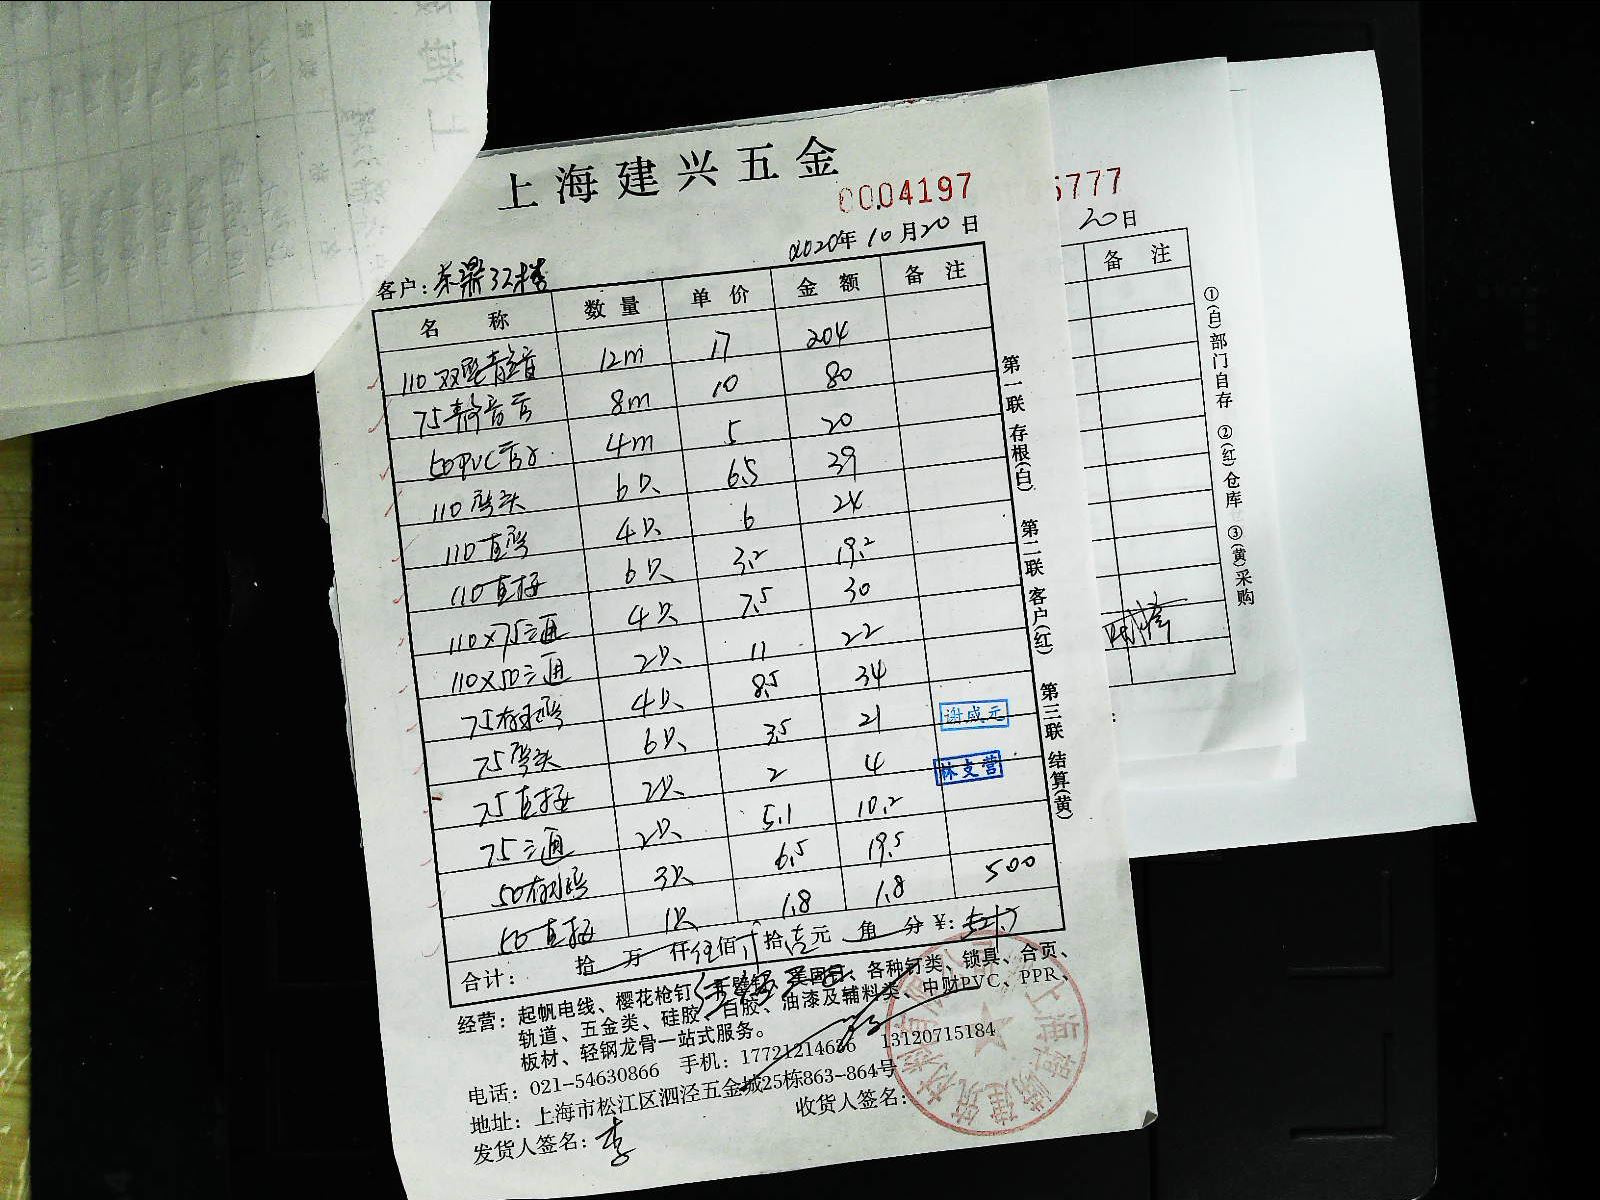 上海建兴五金
0004197
2020年10月20日
客户: 茶鼎32楼
名 称 数量 单价 金额 备注
110 双壁静音 12m 17 204
75静音管 8m 10 80
50PVC管 4m 5 20
110弯头 6只 6.5 39
110直弯 4只 6 24
110直接 6只 3.2 19.2
110×75三通 4只 7.5 30
110×50三通 2只 11 22
75存水弯 4只 8.5 34
75弯头 6只 3.5 21
75直接 2只 2 4
75三通 2只 5.1 10.2
50存水弯 3只 6.5 19.5
50直接 1只 1.8 1.8
500
谢成元
林支营
合计: 拾 万 仟 伍佰 拾 壹元 角 分 ¥:
经营: 起帆电线、樱花枪钉、各种钉类、锁具、合页、
轨道、五金类、硅胶、白胶、油漆及辅料类、中财PVC、PPR、
板材、轻钢龙骨一站式服务。
电话: 021-54630866 手机: 17721214636 13120715184
地址: 上海市松江区泗泾五金城25栋863-864号
发货人签名: 李
收货人签名:
第一联 存根(白) 第二联 客户(红) 第三联 结算(黄)
5777
20日
备 注
①(白)部门自存 ②(红)仓库 ③(黄)采购